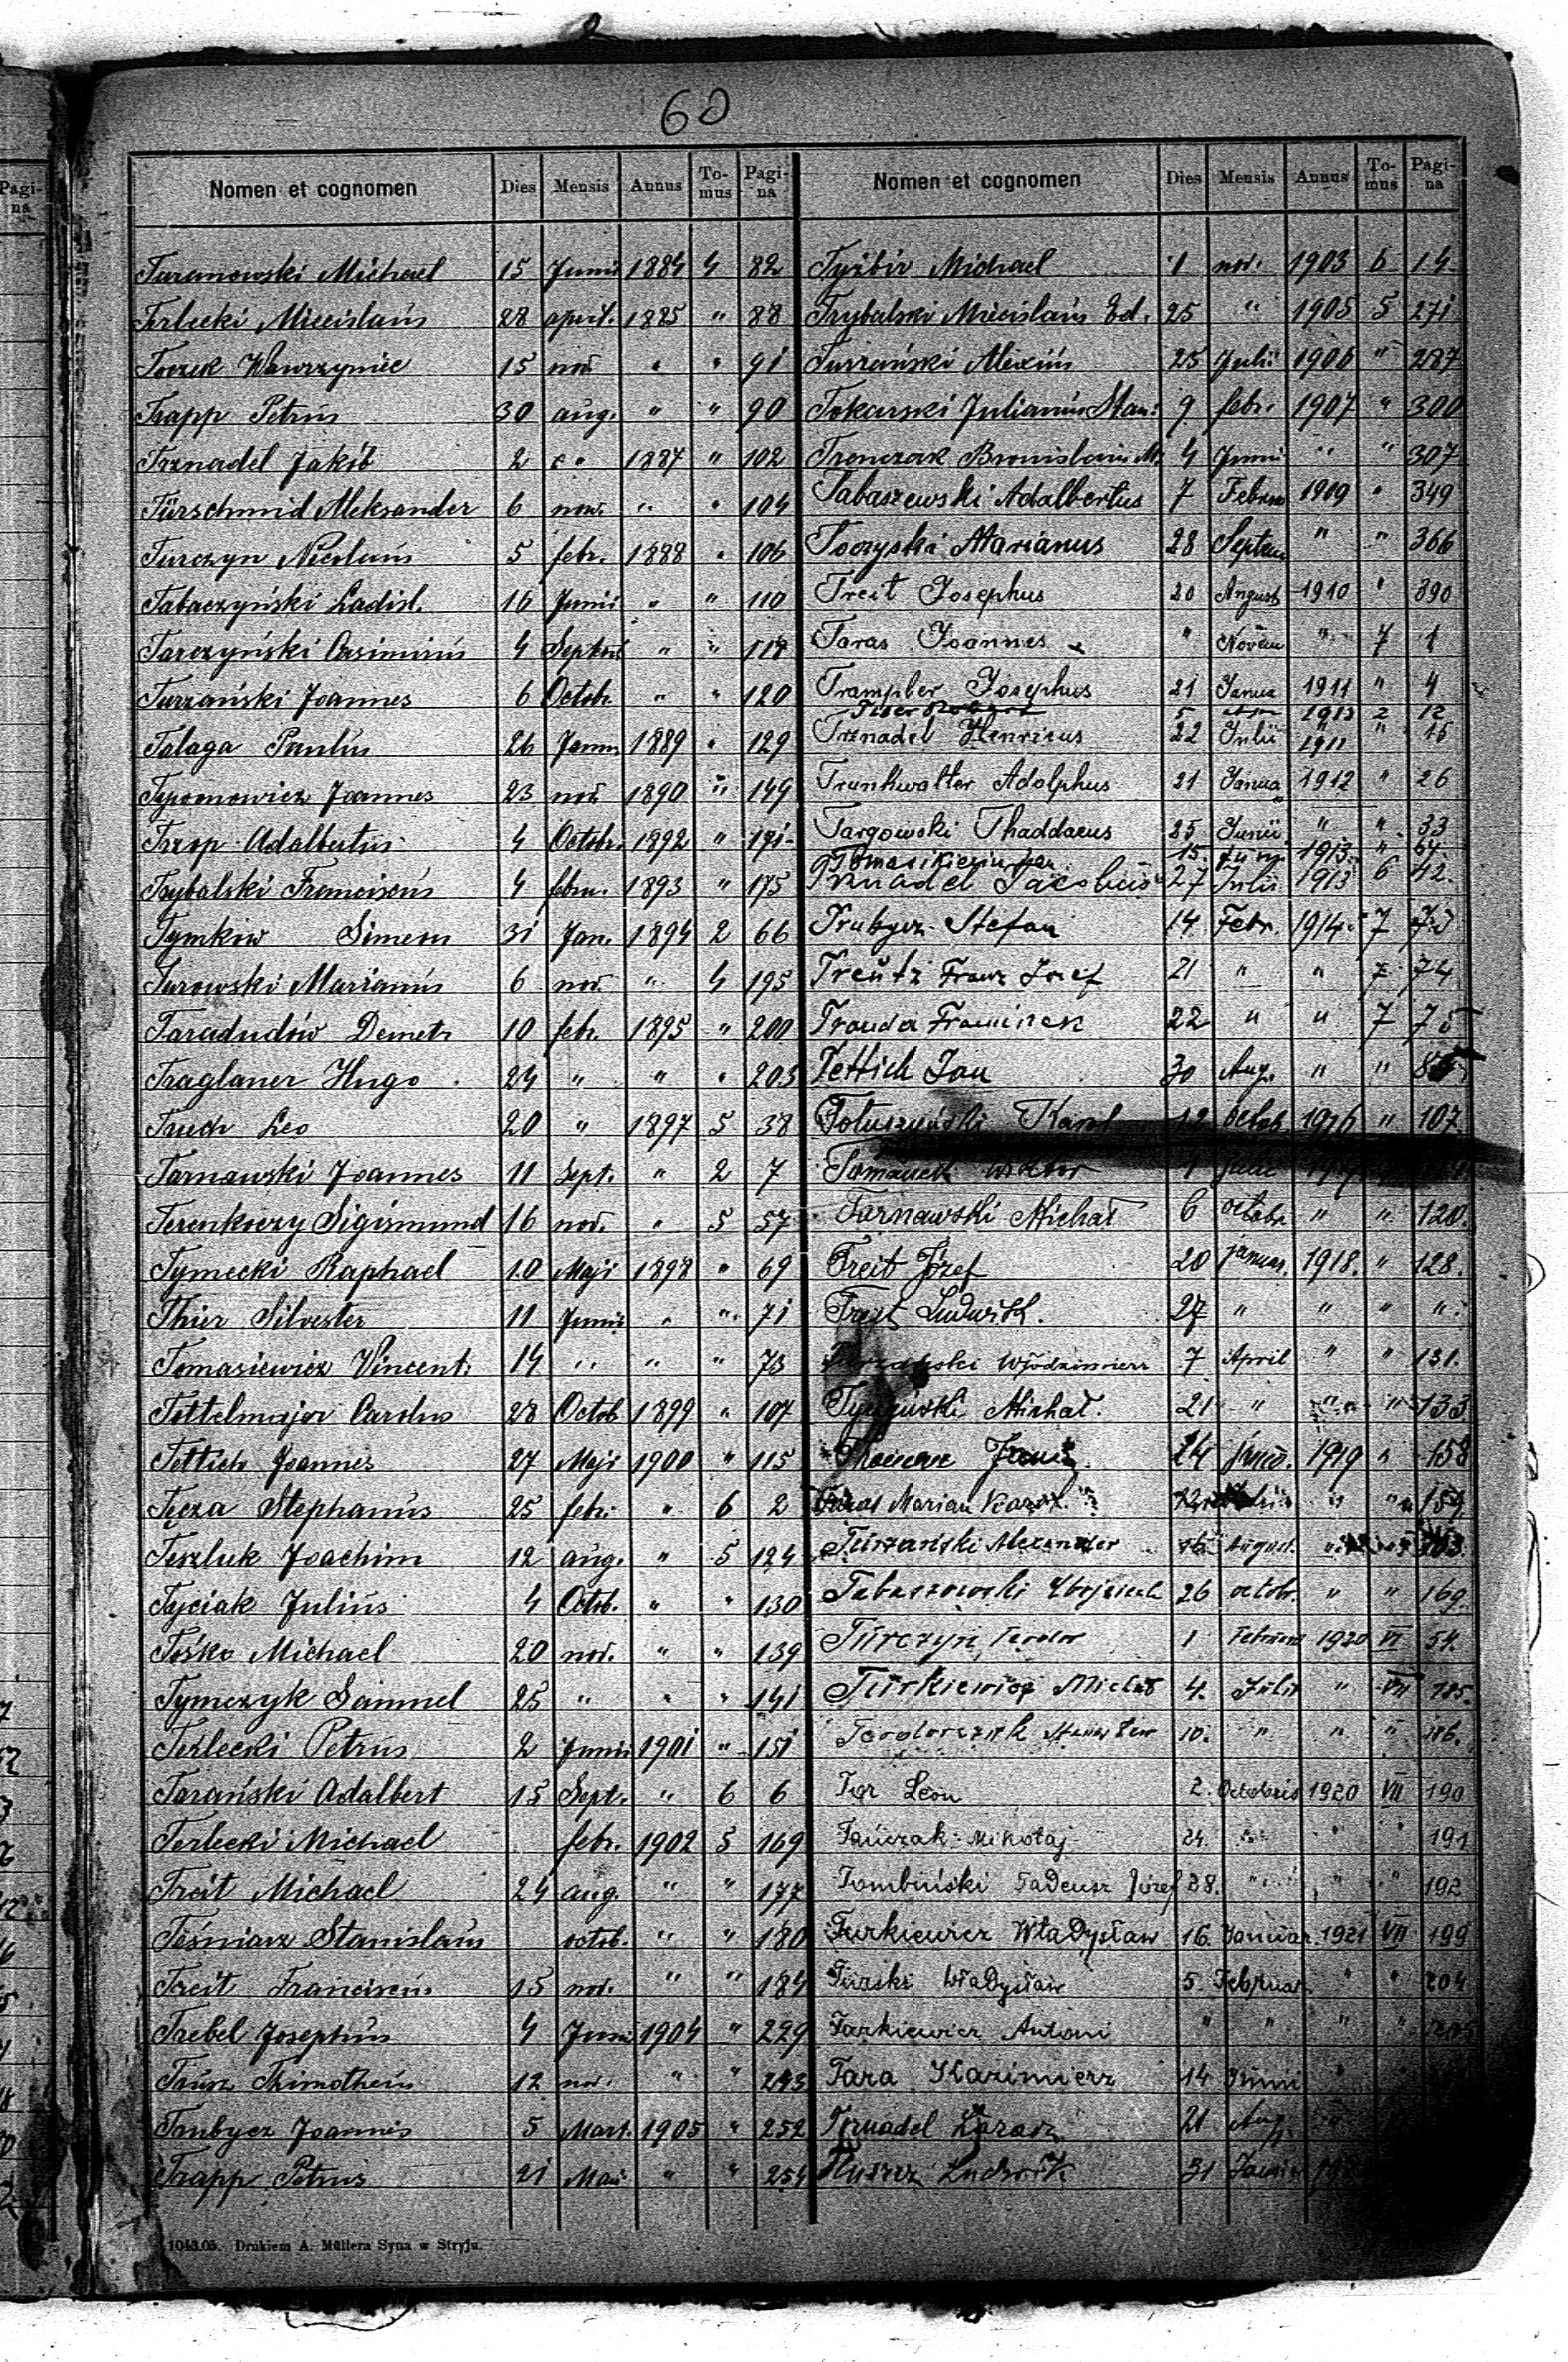 60
Nomen et cognomen Dies Mensis Annus To-mus Pagi-na
Turanowski Michael 15 Junii 1884 4 82
Terlecki Miecislaus 28 april. 1885 " 88
Toczek Wawrzyniec 15 nov. " " 91
Trapp Petrus 30 aug. " " 90
Trznadel Jakób 2 1887 " 102
Türschmid Aleksander 6 now. " " 104
Turczyn Nicolaus 5 febr. 1888 " 106
Tabaczyński Ladisl. 16 Junii " " 110
Tarczyński Casimirus 4 Septem " " 117
Turzański Joannes 6 Octob. " " 120
Talaga Paulus 26 Janu 1889 " 129
Typomowicz Joannes 23 nov. 1890 " 149
Trzop Adalbertus 4 Octobr. 1892 " 171
Trybalski Franciscus 4 febru. 1893 " 175
Tymkiw Simeon 31 Jan. 1894 2 66
Turowski Marianus 6 nov. " 4 195
Taradudów Demetr 10 febr. 1895 " 200
Traglauer Hugo 24 " " " 203
Tauch Leo 20 " 1897 5 38
Tarnawski Joannes 11 Sept. " 2 7
Terenkoczy Sigismund 16 nov. " 5 57
Tymecki Raphael 10 Maji 1898 " 69
Thier Silvester 11 Junii " " 71
Tomasiewicz Vincent. 14 " " " 73
Tettelmajer Carolus 28 Octob 1899 " 107
Tettich Joannes 27 Maji 1900 " 115
Tęcza Stephanus 25 febr. " 6 2
Teszluk Joachim 12 aug. " 5 124
Tyciak Julius 4 Octob. " " 130
Tośko Michael 20 nov. " " 139
Tymczyk Samuel 25 " " " 141
Terlecki Petrus 2 Junii 1901 " 151
Tarański Adalbert 15 Sept. " 6 6
Terlecki Michael febr. 1902 5 169
Treit Michael 24 aug. " " 177
Teśniarz Stanislaus octob. " " 180
Treit Franciscus 15 nov. " " 184
Trebel Josephus 4 Junii 1904 " 229
Timotheus 12 nov. " " 243
Trubycz Joannes 5 Mart. 1905 " 252
Trapp Petrus 21 Maii " " 254
1043.05. Drukiem A. Müllera Syna w Stryju.
Nomen et cognomen Dies Mensis Annus To-mus Pagi-na
Tyżbir Michael 1 nov. 1903 6 14
Trybalski Miecislaus Ed. 25 " 1905 5 271
Turzański Alexius 25 Julii 1906 " 287
Tokarski Julianus Stan: 9 febr. 1907 " 300
Trenczak Bronislaus M. 4 Junii " " 307
Tabaszewski Adalbertus 7 Februa 1909 " 349
Toczyski Marianus 28 Septem " " 366
Treit Josephus 20 August 1910 " 390
Taras Joannes " Novem " 7 1
Trampler Josephus 21 Janua 1911 " 4
5 1912 2 12
Trznadel Henricus 22 Julii 1911 " 15
Trunkwalter Adolphus 21 Janua 1912 " 26
Targowski Thaddaeus 25 Junii " " 33
15 1913 " 64
Trznadel Jacobus 27 Julii 1913 6 42.
Trubycz Stefan 14 Febr. 1914 7 73
Treütz Franz Josef 21 " " 7 74
Trauda Franciszek 22 " " 7 75
Tettich Jan 30 Aug. " " 85
Totuszyński Karol 12 Octob. 1916 " 107
Tomanek Wiktor 4
Tarnawski Michał 6 octobr. " " 120.
Treit Józef 20 januar. 1918. " 128.
Treit Ludwik. 27 " " " "
Włodzimierz 7 April " " 131.
Michał. 21 " " " 133
24 1919 " 158
Marian Karol 159
Turzański Alexander August.
Tabaszewski Wojciech 26 octobr. " " 169.
Türczyn Teodor 1 Februar 1920 VI 54.
Türkiewicz Michał 4. Julii " VII 185.
Teodorczuk 10. " " " 186.
Tor Leon 2. Octobris 1920 VII 190
Tańczak Mikołaj 24. " " " 191
Tombiński Tadeusz Józef 28. " " " 192
Turkiewicz Władysław 16. Januar. 1921 VII 199
Turski Władysław 5. Februar. " " 204
Tarkiewicz Antoni " " " "
Tara Kazimierz 14 Junii "
Trznadel 21 Aug.
Tłuszcz Ludwik 31